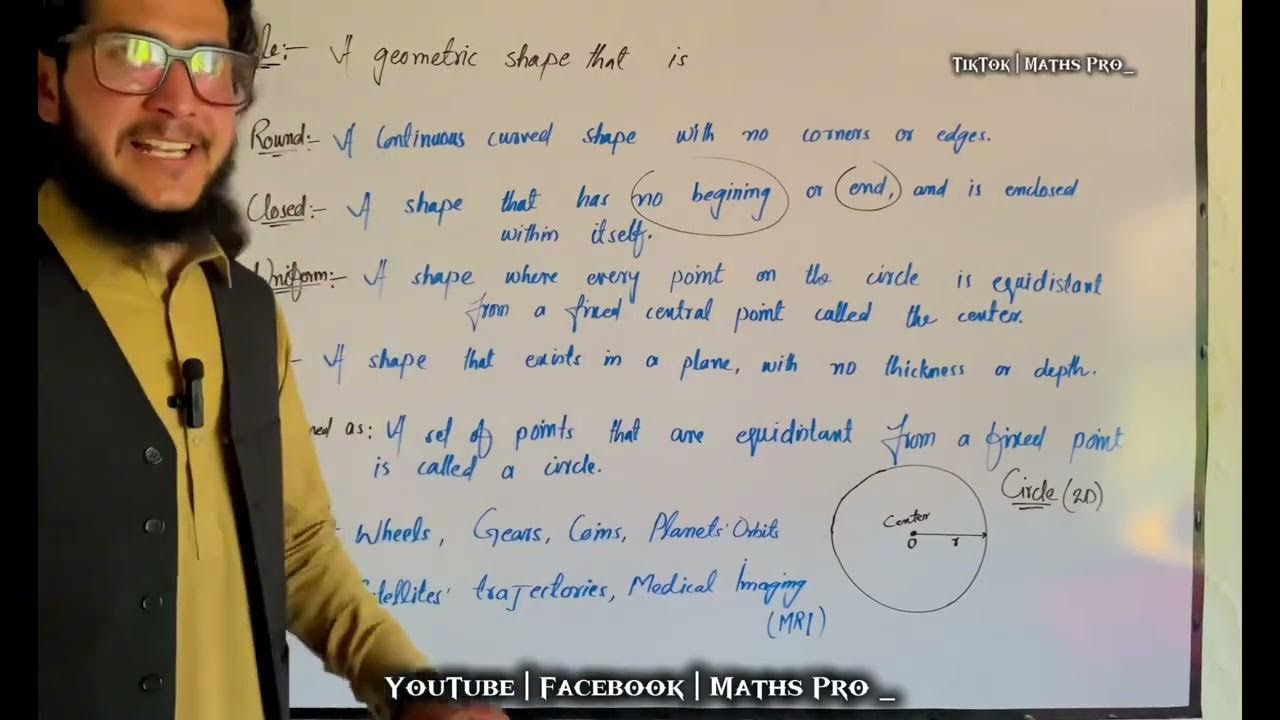 A geometric shape that is
TikTok | Maths Pro_
Round:- A Continuous curved shape with no corners or edges.
Closed:- A shape that has no begining or end, and is enclosed
within itself.
Uniform:- A shape where every point on the circle is equidistant
from a fixed central point called the center.
- A shape that exists in a plane, with no thickness or depth.
as: A set of points that are equidistant from a fixed point
is called a circle.
Circle (2D)
Center
O r
Wheels, Gears, Coins, Planets' Orbits
trajectories, Medical Imaging
(MRI)
YouTube | Facebook | Maths Pro _